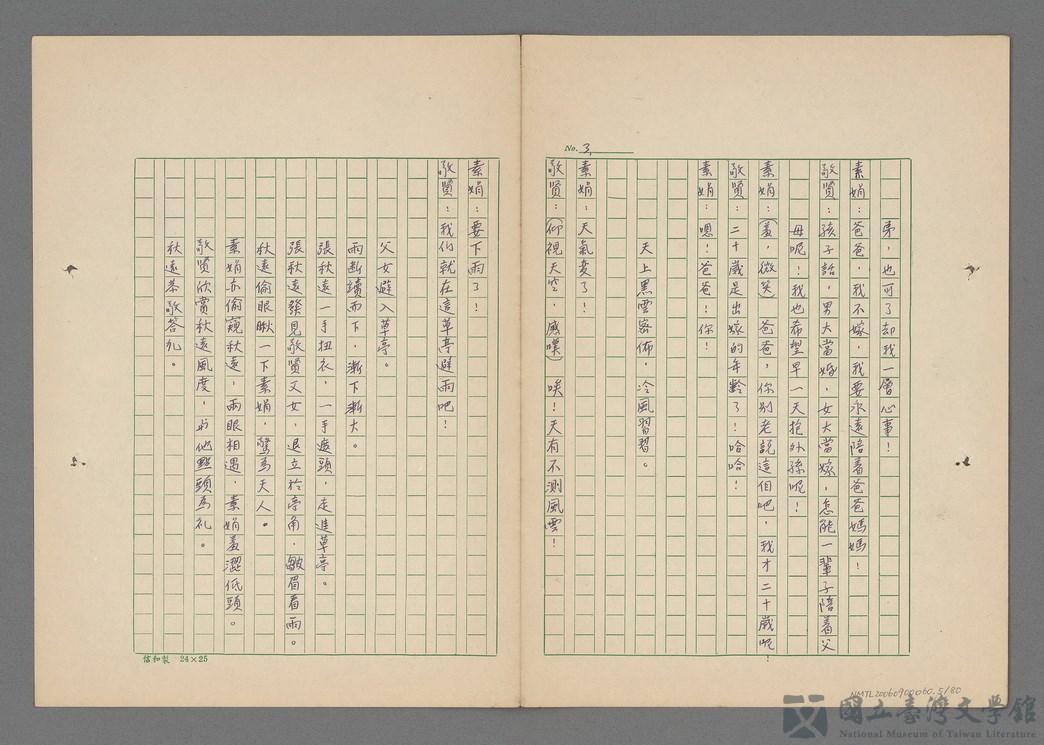 No. 3,
弟，也可了却我一層心事！
素娟：爸爸，我不嫁，我要永遠陪着爸爸媽媽！
敬賢：孩子話，男大當婚，女大當嫁，怎能一輩子陪着父
母呢！我也希望早一天抱外孫呢！
素娟：（羞，微笑）爸爸，你別老說這個吧，我才二十歲呢！
敬賢：二十歲是出嫁的年齡了！哈哈！
素娟：嗯！爸爸！你！
天上黑雲密佈，冷風習習。
素娟：天氣變了！
敬賢：（仰視天空，感嘆）唉！天有不測風雲！
素娟：要下雨了！
敬賢：我们就在這草亭避雨吧！
父女避入草亭。
雨斷續而下，漸下漸大。
張秋遠一手扭衣，一手遮頭，走進草亭。
張秋遠發見敬賢父女，退立於亭角，皺眉看雨。
秋遠偷眼瞅一下素娟，驚為天人。
素娟亦偷窺秋遠，兩眼相遇，素娟羞澀低頭。
敬賢欣賞秋遠風度，向他點頭為礼。
秋遠恭敬答礼。
信和製 24×25
NMTL20060900060.5/80
國立臺灣文學館
National Museum of Taiwan Literature